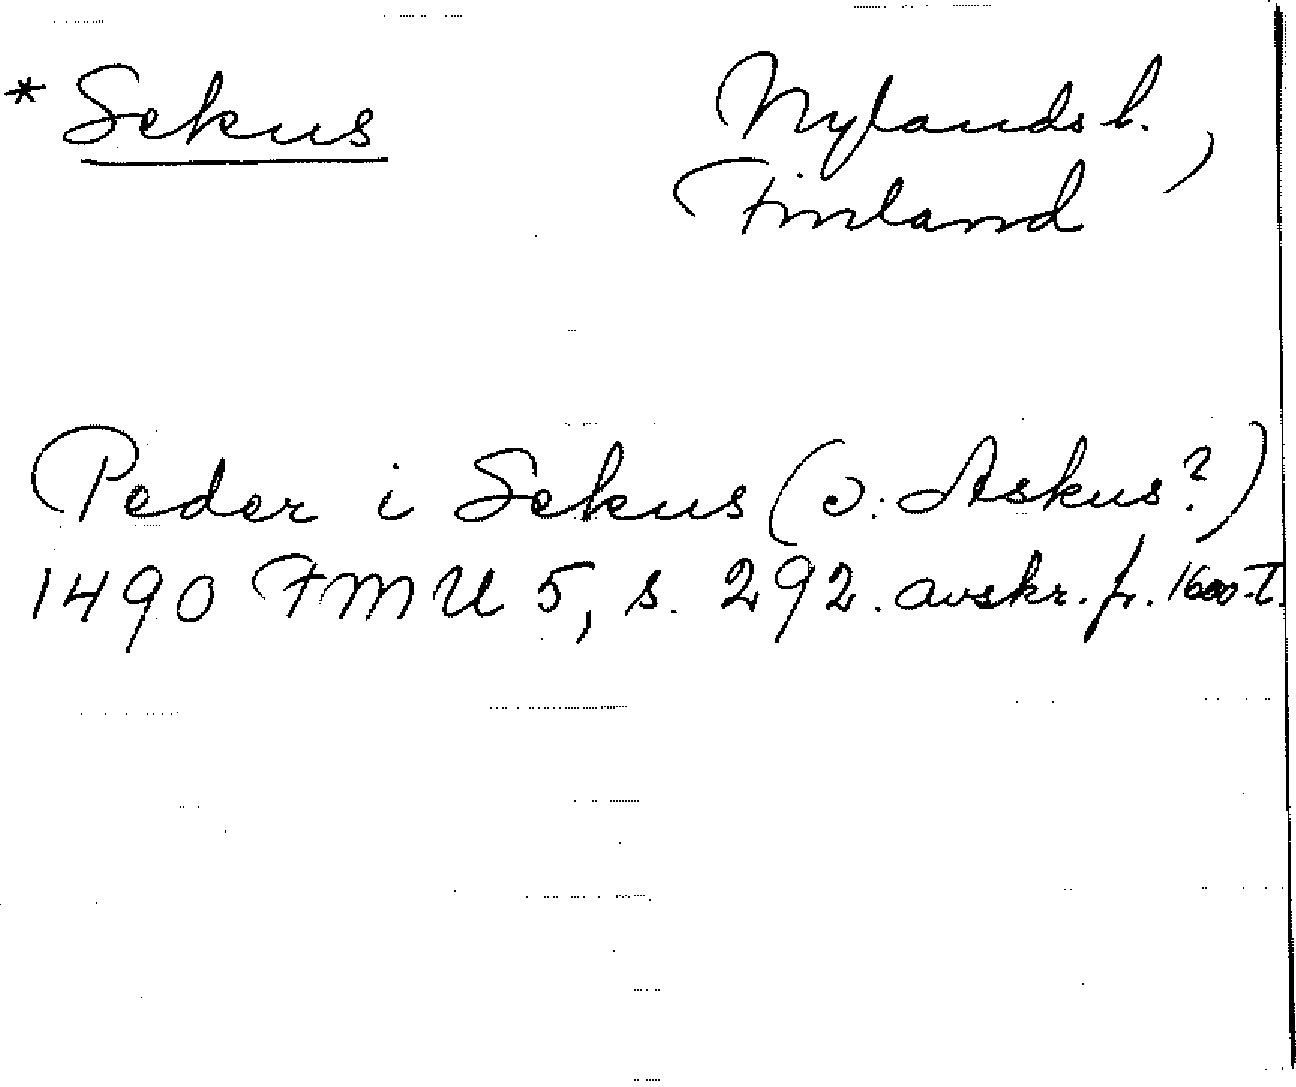 * Sekus
Nylands l.,
Finland
Peder i Sekus (ɔ: Askus?)
1490 FMU 5, s. 292. avskr. fr. 1600-t.